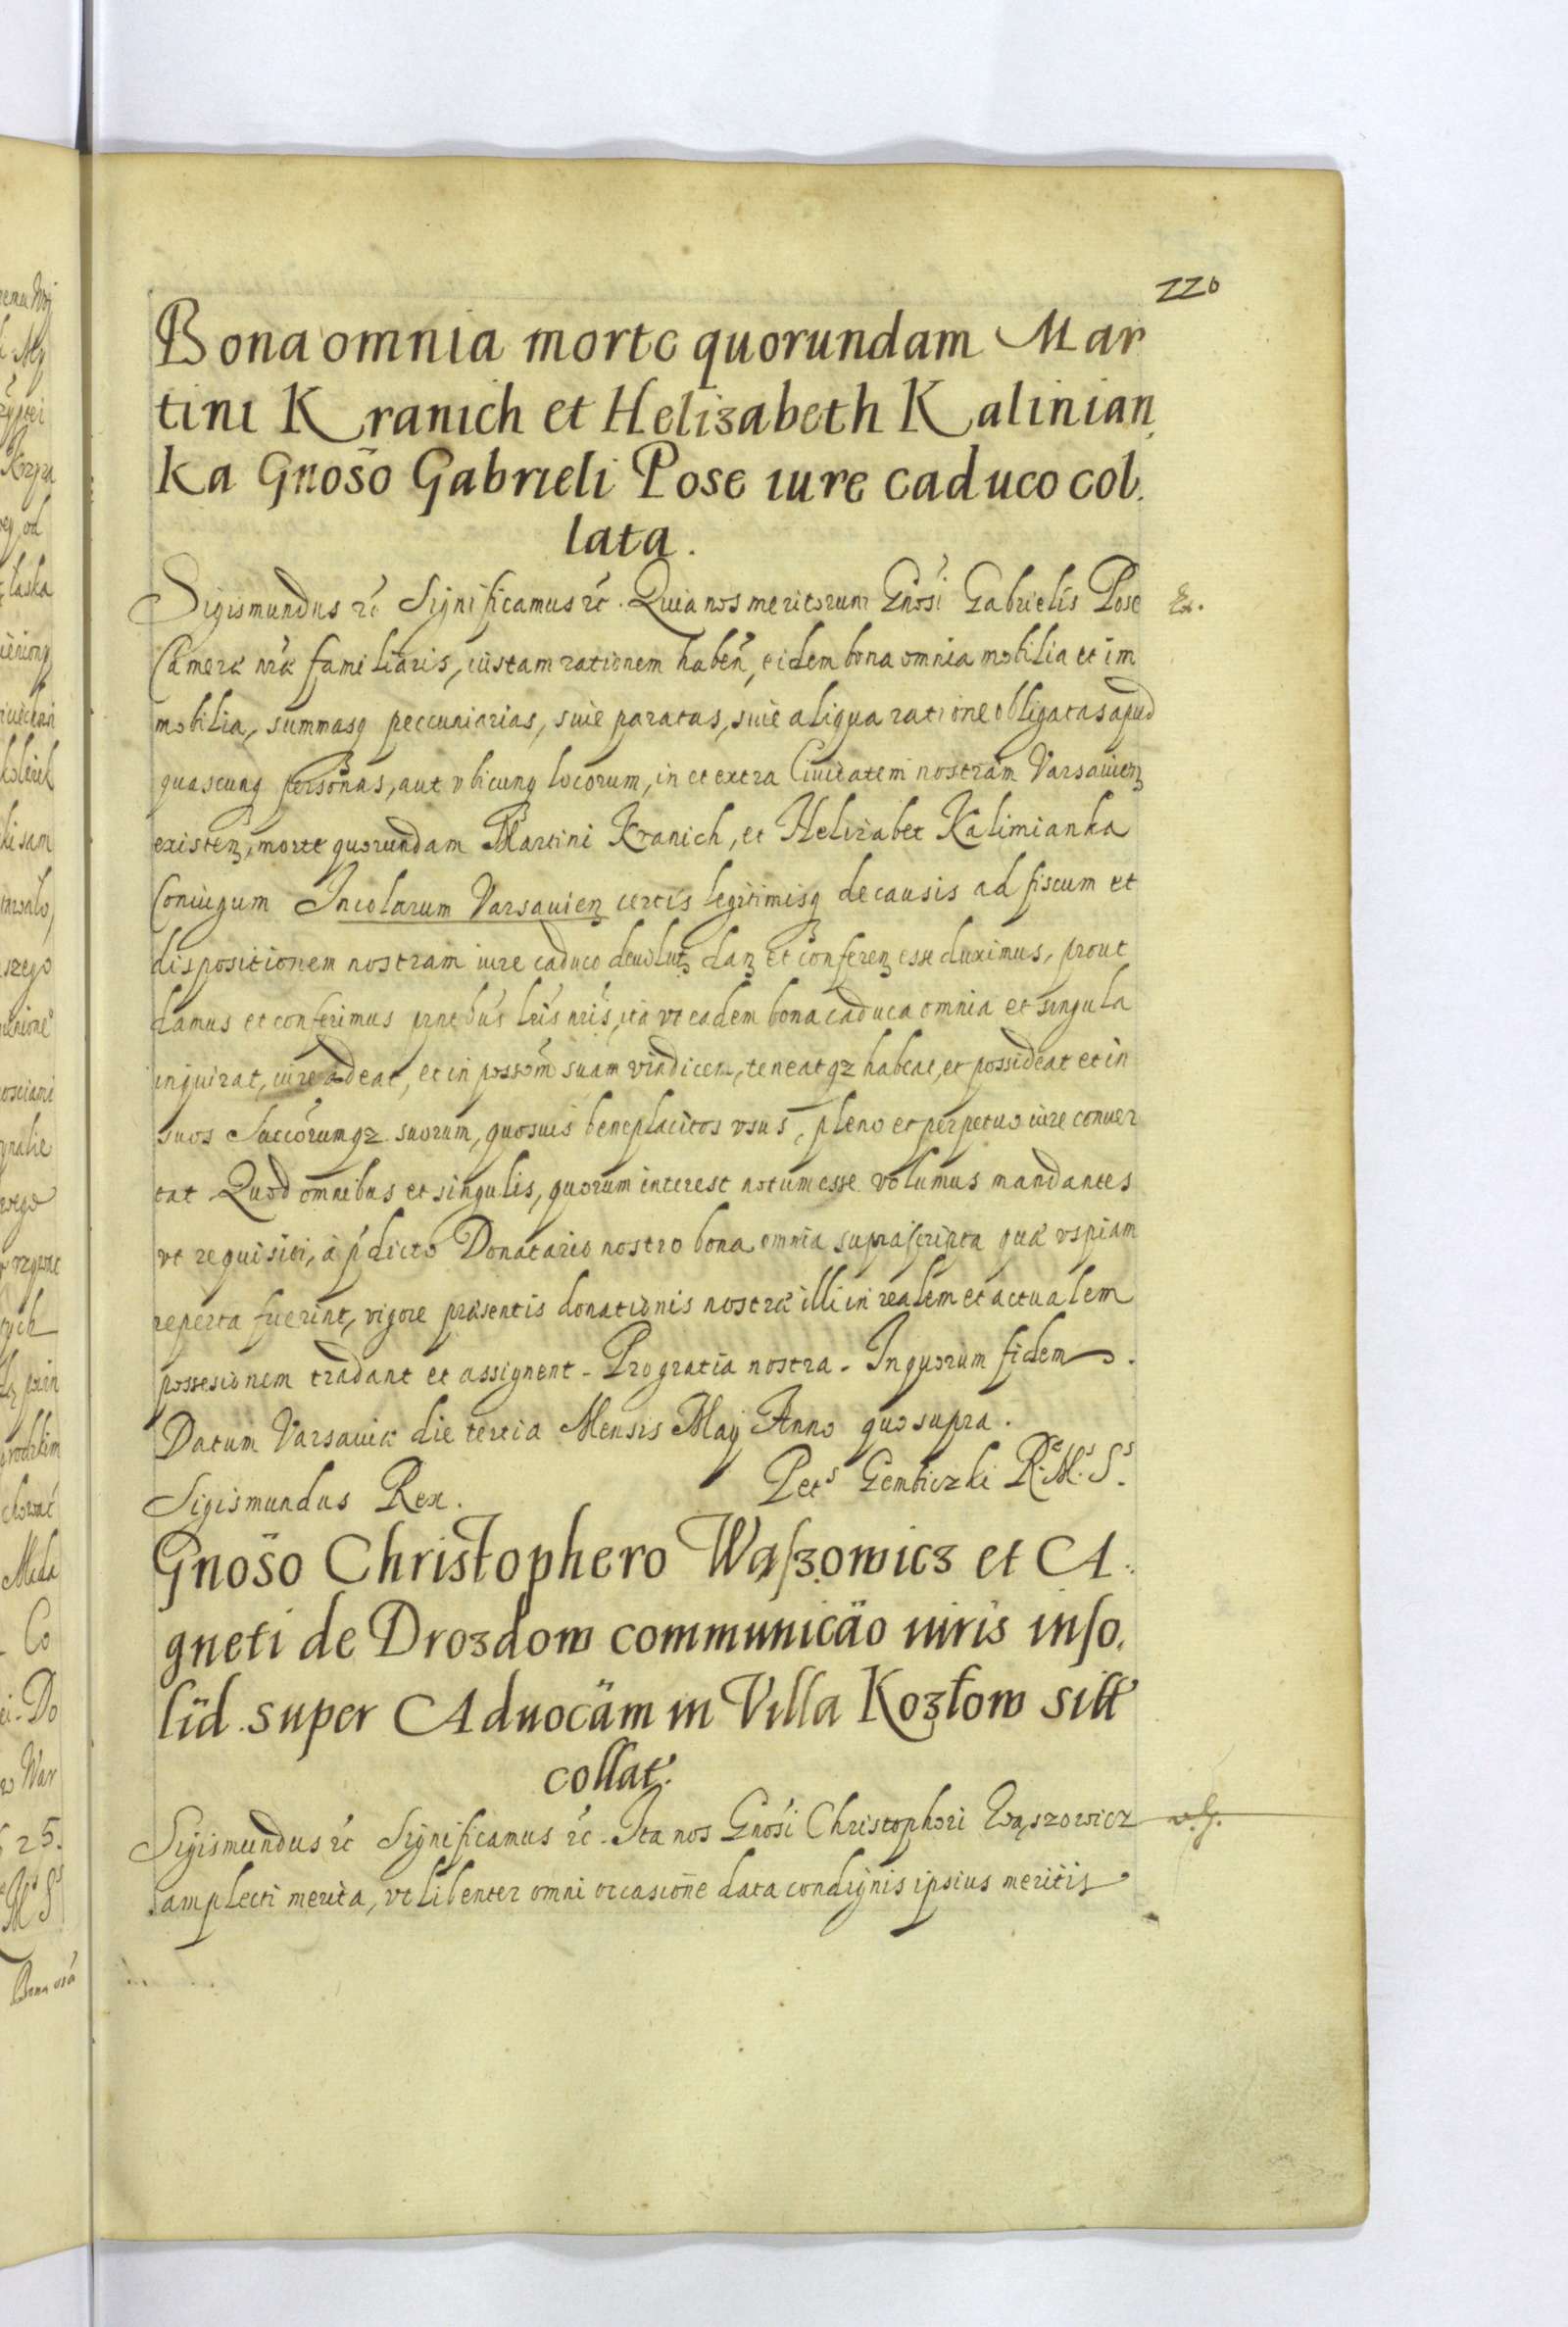 220
Bona omnia morte quorundam Mar
tini Kranich et Helizabeth Kalinian
ka Gnoso Gabrieli Pose iure caduco col.
lata.
Sigismundus rc Significamus rc. Quia nos meritorum Gnosi Gabrielis Pose Ex.
Cameræ nræ familiaris, iustam rationem haben, eidem bona omnia mobilia et im
mobilia, summasq peccuniarias, siue paratas, siue aliqua ratione obligatas apud
quascunq personas, aut vbicunq locorum, in et extra Ciuitatem nostram Varsauien
existen, morte quorundam Martini Kranich, et Helizabet Kalimianka
Coniugum Incolarum Varsauien certis legitimisq de causis ad fiscum et
dispositionem nostram iure caduco deuolut, dan et conferen esse duximus, prout
damus et conferimus prntibus lris nris, ita vt eadem bona caduca omnia et singula
inquirat, iure adeat, et in possom suam vindicet, teneatqz habeat, et possideat et in
suos Succorumqz suorum, quosuis beneplacitos vsus, pleno et perpetuo iure conuer
tat. Quod omnibus et singulis, quorum interest notum esse volumus mandantes
vt requisiti, à pdicto Donatario nostro bona omnia suprascripta quæ vspiam
reperta fuerint, vigore præsentis donationis nostræ illi in realem et actualem
possesionem tradant et assignent - Pro gratia nostra - In quorum fidem.
Datum Varsauiæ die tertia Mensis Maij Anno quo supra.
Sigismundus Rex. Pets Gembiczki R.M.S.
Gnoso Christophero Waszowicz et A
gneti de Drozdow communicao iuris inso.
lid. super Aduocam in Villa Kozłow sitt
collat.
Sigismundus rc Significamus rc. Ita nos Gnosi Christophori Wąszowicz
amplecti merita, vt libenter omni occasione data condignis ipsius meritis